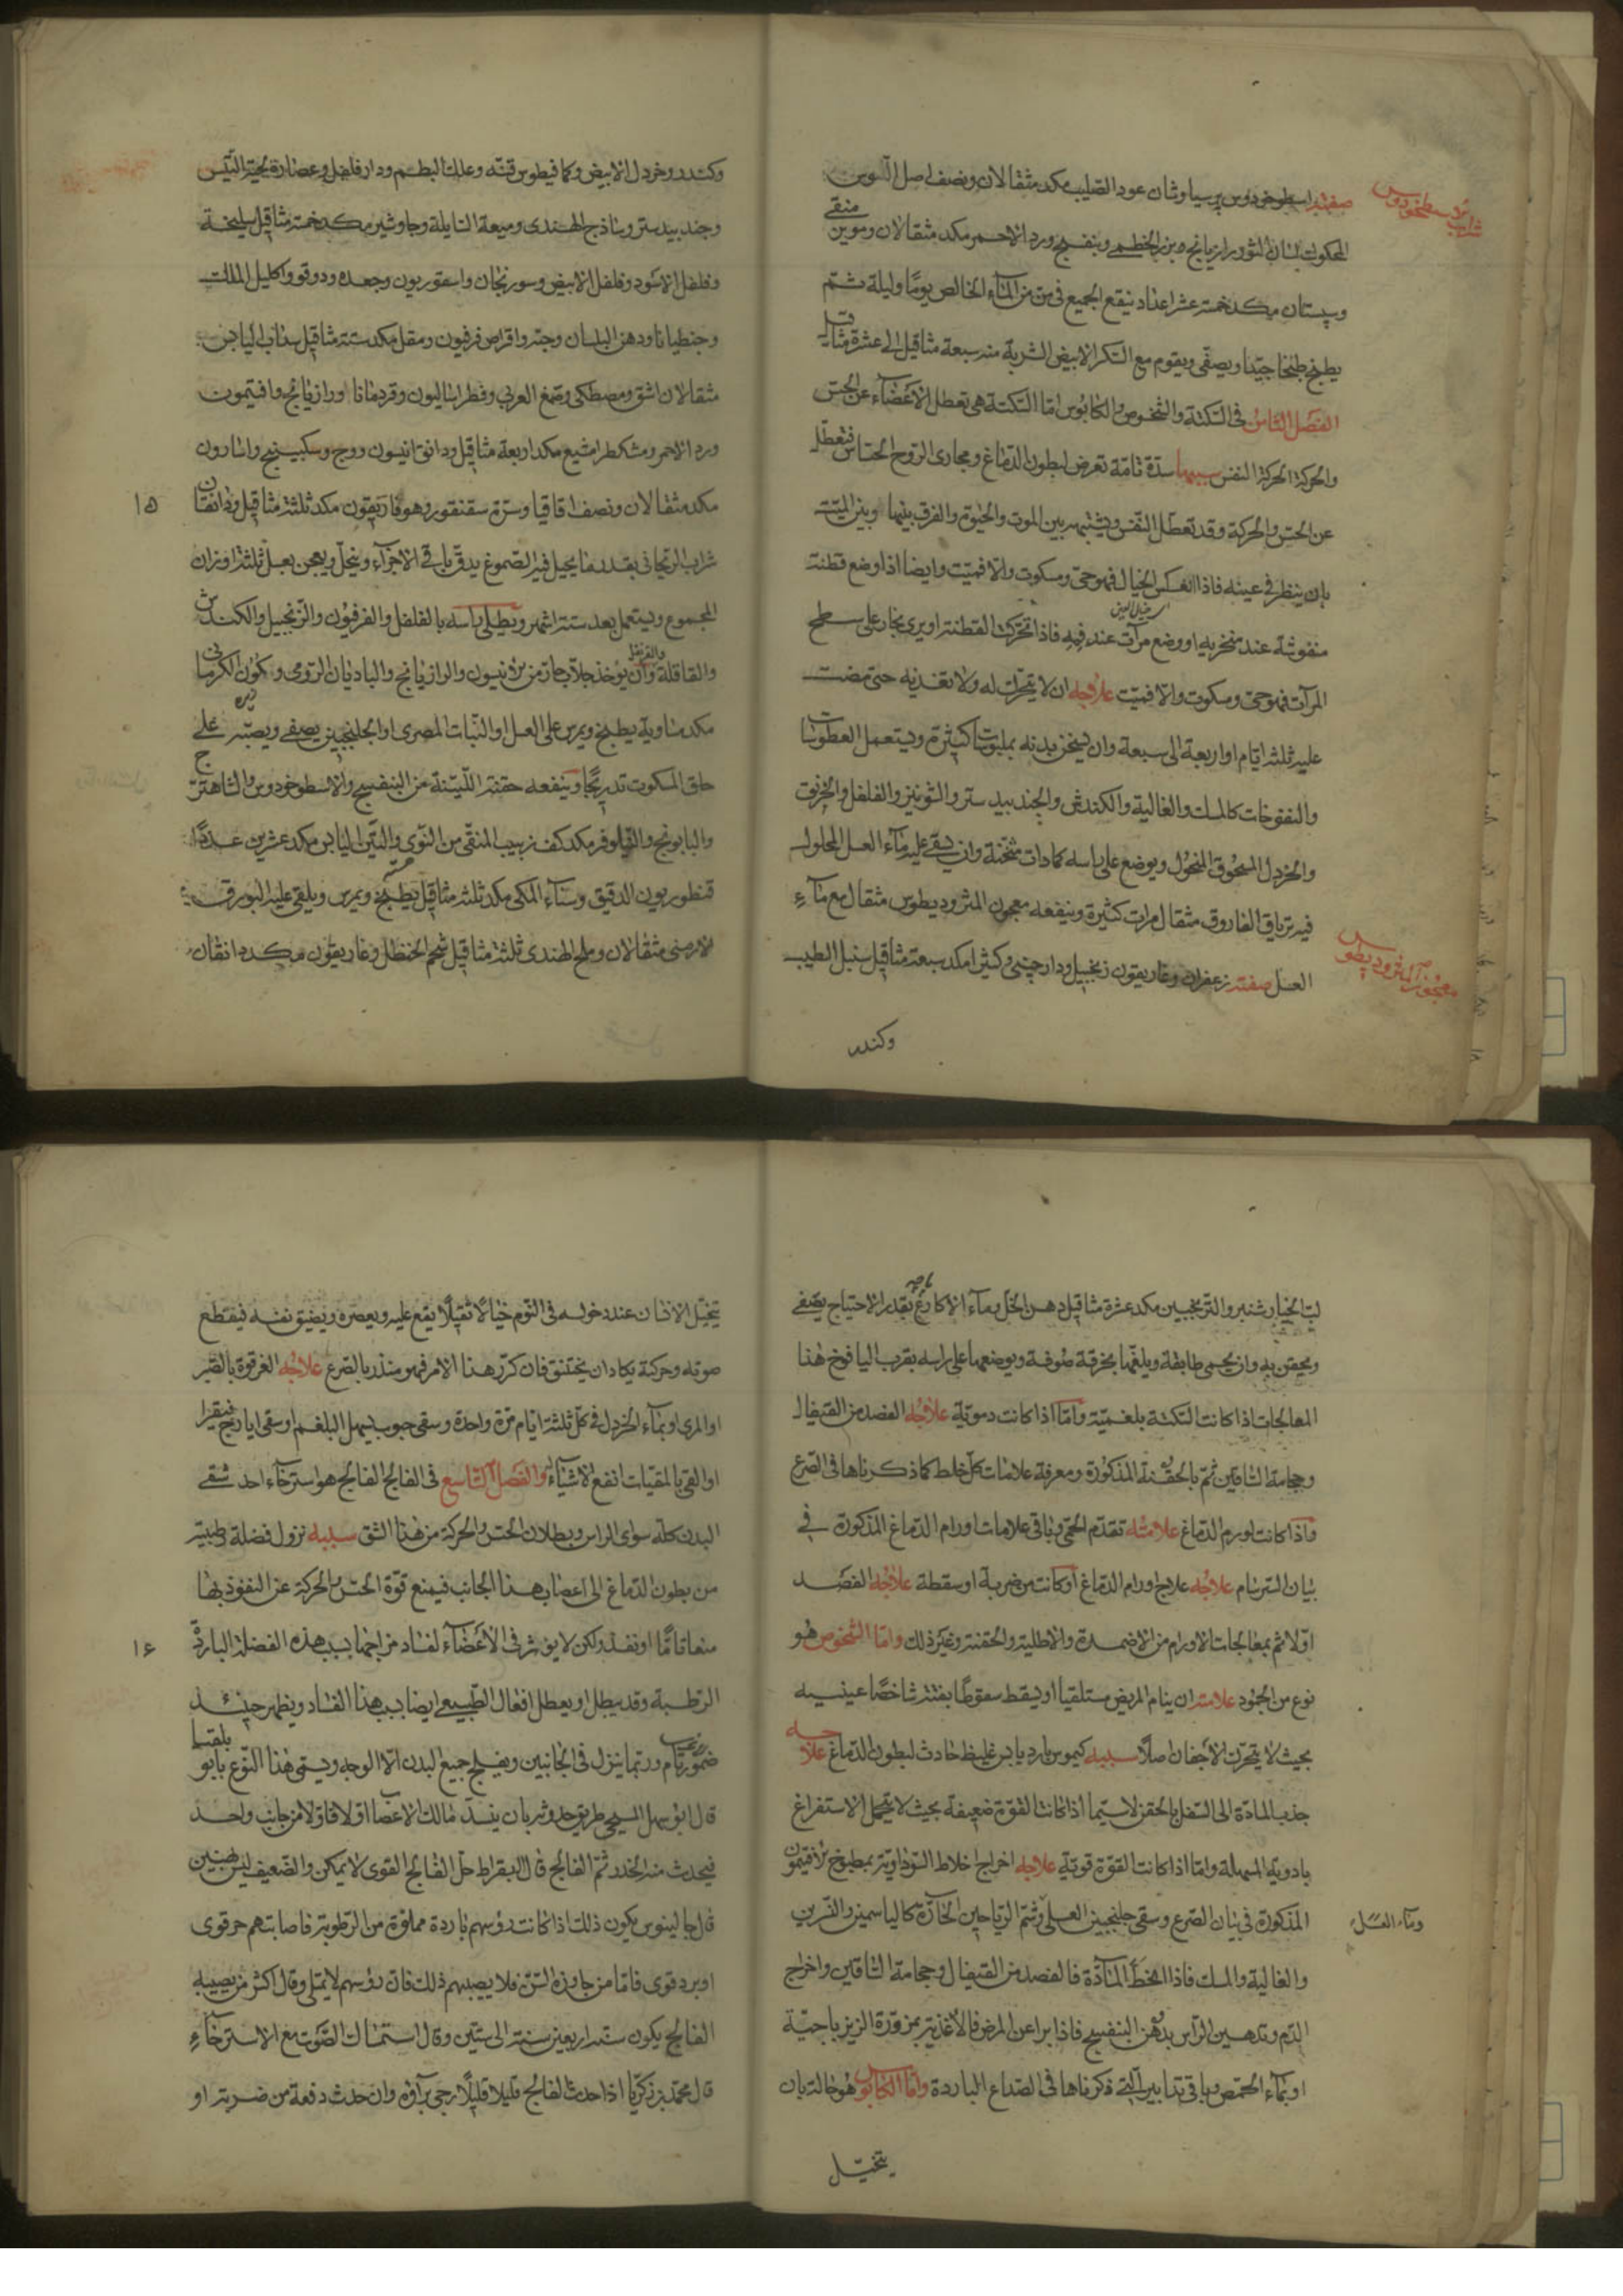 شراب اسطوخودوس
صفته اسطوخودوس پرسیاوشان عود الصلیب مکد مثقالان ونصف اصل السوس
المحکوک لسان الثور رازیانج وبزر الخطمی وبنفسج وورد الاحمر مکد مثقالان ومویز منقی
وسپستان مکد خمسة عشر اعداد ینقع الجمیع فی من من الماء الخالص یوما ولیلة ثم
یطبخ طبخا جیدا ویصفی ویقوم مع السکر الابیض الشربة منه سبعة مثاقیل الی عشرة مثاقیل
الفصل الثامن فی السکتة والشخوص والکابوس اما السکتة هی تعطل الاعضاء عن الحس
والحرکة الا حرکة النفس سببها سدة تامة تعرض لبطون الدماغ ومجاری الروح الحساس فتعطل
عن الحس والحرکة وقد تعطل النفس ویشتبه بین الموت والحیوة والفرق بینها وبین المیت
بان ینظر فی عینه فاذا انعکس الخیال فهو حی ومسکوت والا فمیت وایضا اذا وضع قطنة
منفوشة عند منخریه او وضع مرآت عند فمه فاذا تحرکت القطنة او یری بخار علی سطح
المرآت فهو حی ومسکوت والا فمیت علاجه ان لا یتحرک له ولا تغذیه حتی مضت
علیه ثلثة ایام او اربعة الی سبعة وان یسخن بدنه بملبوسات کثیرة ویستعمل العطوسات
والنفوخات کالمسک والغالیة والکندش والجندبیدستر والشونیز والفلفل والخربق
والخردل المسحوق المنخول ویوضع علی راسه کمادات مسخنة وان یسقی علیه ماء العسل المحلول
فیه تریاق الفاروق مثقال مرات کثیرة وینفعه معجون المثرودیطوس مثقال مع ماء
العسل صفته زعفران وغاریقون زنجبیل ودارچینی وکثیرا مکد سبعة مثاقیل سنبل الطیب
معجون المثرودیطوس
وکندر
وکندر وخردل الابیض وکمافیطوس قنه وعلک البطم ودارفلفل وعصارة لحیة التیس
وجندبیدستر وساذج الهندی ومیعة السایلة وجاوشیر مکد خمسة مثاقیل سلیخة
وفلفل الاسود وفلفل الابیض وسورنجان واسقوریون وجعده ودوقو واکلیل الملک
وجنطیانا ودهن البلسان وحبه واقراص فرفیون ومقل مکد ستة مثاقیل سداب الیابس
مثقالان اشق ومصطکی وصمغ العربی وفطراسالیون وقردمانا ورازیانج وافتیمون
ورد الاحمر ومشکطرامشیع مکد اربعة مثاقیل ودانق انیسون ووج وسکبینج واسارون
مکد مثقالان ونصف اقاقیا وسرة سقنقور وهوفاریقون مکد ثلثة مثاقیل ودانقان
۱۵
شراب الریحانی بقدر ما یحیل فیه الصموغ یدق باقی الاجزاء وینخل ویعجن بعسل ثلثة اوزان
المجموع ویستعمل بعد ستة اشهر ویطلی راسه بالفلفل والفرفیون والزنجبیل والکندش
والقاقلة والقرنفل وان یوخذ جلاب حار من الانیسون والرازیانج والبادیان الرومی وکمون الکرمانی
مکد مساویة یطبخ ویمرس علی العسل او النبات المصری او الجلنجبین یصفی ویصبه علی
حلق المسکوت تدریجا وینفعه حقنة اللینة من البنفسج والاسطوخودوس والشاهترج
والبابونج والنیلوفر مکد کف زبیب المنقی من النوی والتین الیابس مکد عشرین عددا
قنطوریون الدقیق وسناء المکی مکد ثلثة مثاقیل یطبخ ویمرس ویلقی علیه البورق
الارمنی مثقالان وملح الهندی ثلثة مثاقیل شحم الحنظل وغاریقون مکد دانقان
لب الخیارشنبر والترنجبین مکد عشرة مثاقیل دهن الخل وماء الاکارع بقدر الاحتیاج یصفی
ویحقن به وان یحمی طابقة ویلفها بخرقة صوفیة ویوضعها علی راسه بقرب الیافوخ هذا
المعالجات اذا کانت السکتة بلغمیة واما اذا کانت دمویة علاجه الفصد من القیفال
وحجامة الساقین ثم بالحقنة المذکورة ومعرفة علامات کل خلط کما ذکرناها فی الصرع
واذا کانت لورم الدماغ علامته تقدم الحمی وباقی علامات اورام الدماغ المذکورة فی
بیان السرسام علاجه علاج اورام الدماغ او کانت من ضربة او سقطة علاجه الفصد
اولا ثم بمعالجات الاورام من الاضمدة والاطلیة والحقنة وغیر ذلک واما الشخوص هو
نوع من الجمود علامته ان ینام المریض مستلقیا او یسقط سقوطا بغتة شاخصا عینیه
بحیث لا یتحرک الاجفان اصلا سببه کیموس بارد یابس غلیظ حادث لبطون الدماغ علاجه
جذب المادة الی السفل بالحقن لا سیما اذا کانت القوة ضعیفة بحیث لا یحتمل الاستفراغ
بادویة المسهلة واما اذا کانت القوة قویة علاجه اخراج اخلاط السوداویة بمطبوخ الافتیمون
المذکورة فی بیان الصرع وسقی جلنجبین العسلی وشم الریاحین الحارة کالیاسمین والنسرین
وماء العسل
والغالیة والمسک فاذا انحط المادة فالفصد من القیفال وحجامة الساقین واخراج
الدم وتدهین الراس بدهن البنفسج فاذا برا عن المرض فالاغذیة بمزورة الزیرباجیة
او بماء الحمص وباقی تدابیر التی ذکرناها فی الصداع الباردة واما الکابوس هو حالة بان
یتخیل
یتخیل الانسان عند دخوله فی النوم خیالا ثقیلا یقع علیه ویعصره ویضیق نفسه فینقطع
صوته وحرکته یکاد ان یختنق فان کرر هذا الامر فهو منذر بالصرع علاجه الغرغرة بالصبر
او المری او بماء الخردل فی کل ثلثة ایام مرة واحدة وسقی حبوب یسهل البلغم او سقی ایارج فیقرا
او القی بالمقیات انفع الاشیاء والفصل التاسع فی الفالج الفالج هو استرخاء احد شقی
البدن کله سوای الراس وبطلان الحس والحرکة من هذا الشق سببه نزول فضلة رطبیة
من بطون الدماغ الی اعصاب هذا الجانب فیمنع قوة الحس والحرکة عن النفوذ بها
منعا تاما او نفذ لکن لا یوثر فی الاعضاء لفساد مزاجها بسبب هذه الفضلة الباردة
۱۶
الرطبة وقد یبطل او یعطل افعال الطبیعی ایضا بسبب هذا الفساد ویظهر حینئذ
ضمور تام وربما ینزل فی الجانبین ویفلج جمیع البدن الا الوجه ویسمی هذا النوع بابوبلقسیا
قال ابو سهل المسیحی طریق حدوثه بان ینسد مسالک الاعصاب اولا فاولا من جانب واحد
فیحدث منه الخدر ثم الفالج قال البقراط حل الفالج القوی لا یمکن والضعیف لیس بهین
قال جالینوس یکون ذلک اذا کانت رؤسهم باردة مملوة من الرطوبة فاصابتهم حر قوی
او برد قوی فاما من جاوز هذا السن فلا یصیبهم ذلک فان رؤسهم لا یمتلی وقال اکثر من یصیبه
الفالج یکون سنه اربعین سنة الی ستین وقال استمساک الصوت مع الاسترخاء
قال محمد بن زکریا اذا حدث الفالج قلیلا قلیلا ارجی برآؤه وان حدث دفعة من ضربة او